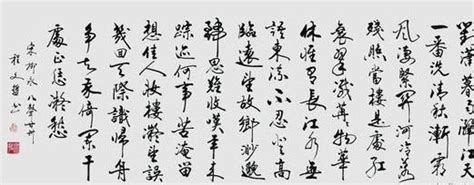 對瀟瀟暮雨灑江天
一番洗清秋漸霜
風淒緊關河冷落
殘照當樓是處紅
衰翠減苒苒物華
休惟有長江水無
語東流不忍登高
臨遠望故鄉渺邈
歸思難收嘆年來
蹤迹何事苦淹留
想佳人妝樓凝望誤
幾回天際識歸舟
爭知我倚闌干
處正恁凝愁
宋柳永八聲甘州